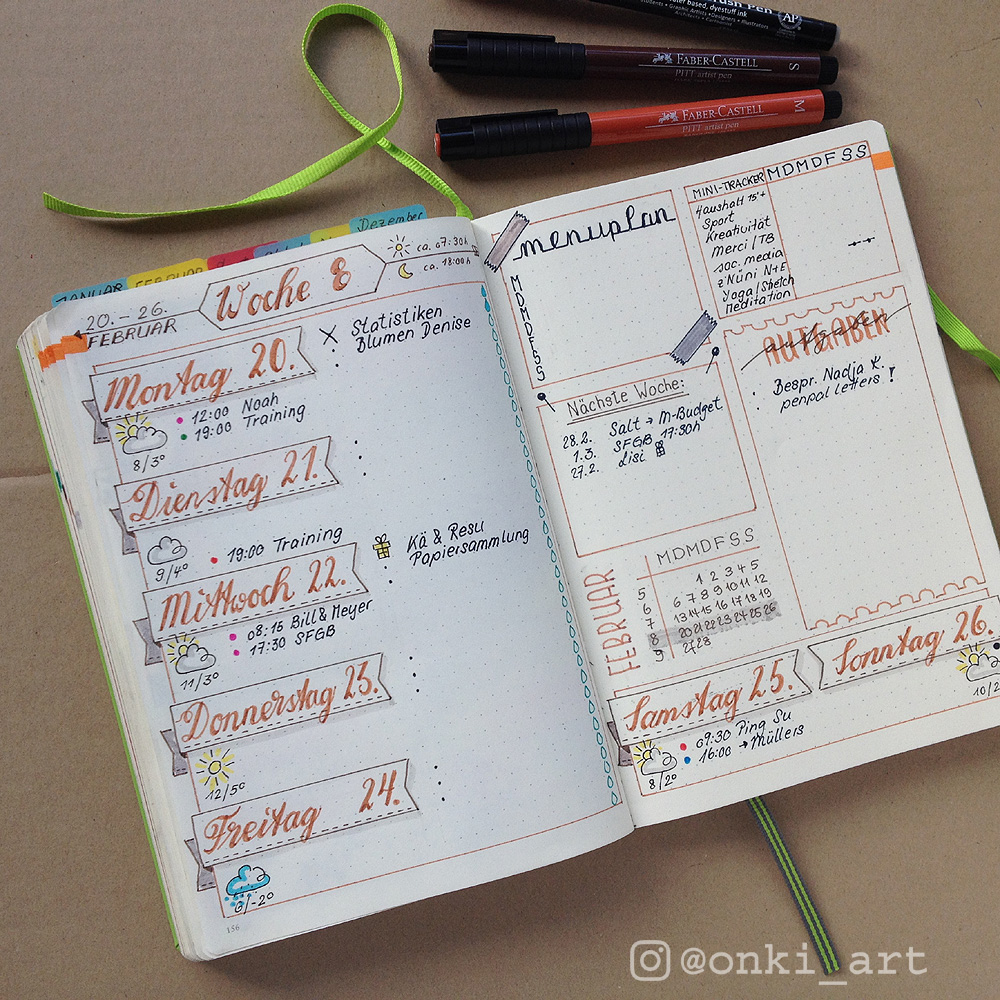 rush Pen
er based, dyestuff ink
Students • Graphic Artists • Designers • Illustrators
Architects • Cartoonist
AP
FABER-CASTELL
PITT artist pen
S
FABER-CASTELL
PITT artist pen
M
Dezember
JANUAR
FEBRUAR
20. – 26.
FEBRUAR
Woche 8
ca. 07:30h
ca. 18:00h
Statistiken
Blumen Denise
Montag 20.
12:00 Noah
19:00 Training
8/3°
Dienstag 21.
19:00 Training
9/4°
Kä & Resu
Papiersammlung
Mittwoch 22.
08:15 Bill & Meyer
17:30 SFGB
11/3°
Donnerstag 23.
12/5°
Freitag 24.
6/-2°
156
menuplan
M
D
M
D
F
S
S
MINI-TRACKER MDMDFSS
Haushalt 15'+
Sport
Kreativität
Merci / TB
soc. media
z'Nüni N+E
Yoga/Stretch
Meditation
Nächste Woche:
28.2. Salt → M-Budget
1.3. SFGB 17:30h
27.2. Lisi
AUFGABEN
aufgaben
Bespr. Nadja K.
penpal letters!
FEBRUAR
MDMDFSS
5 1 2 3 4 5
6 6 7 8 9 10 11 12
7 13 14 15 16 17 18 19
8 20 21 22 23 24 25 26
9 27 28
Samstag 25.
09:30 Ping Su
16:00 → Müllers
8/2°
Sonntag 26.
10/2
@onki_art